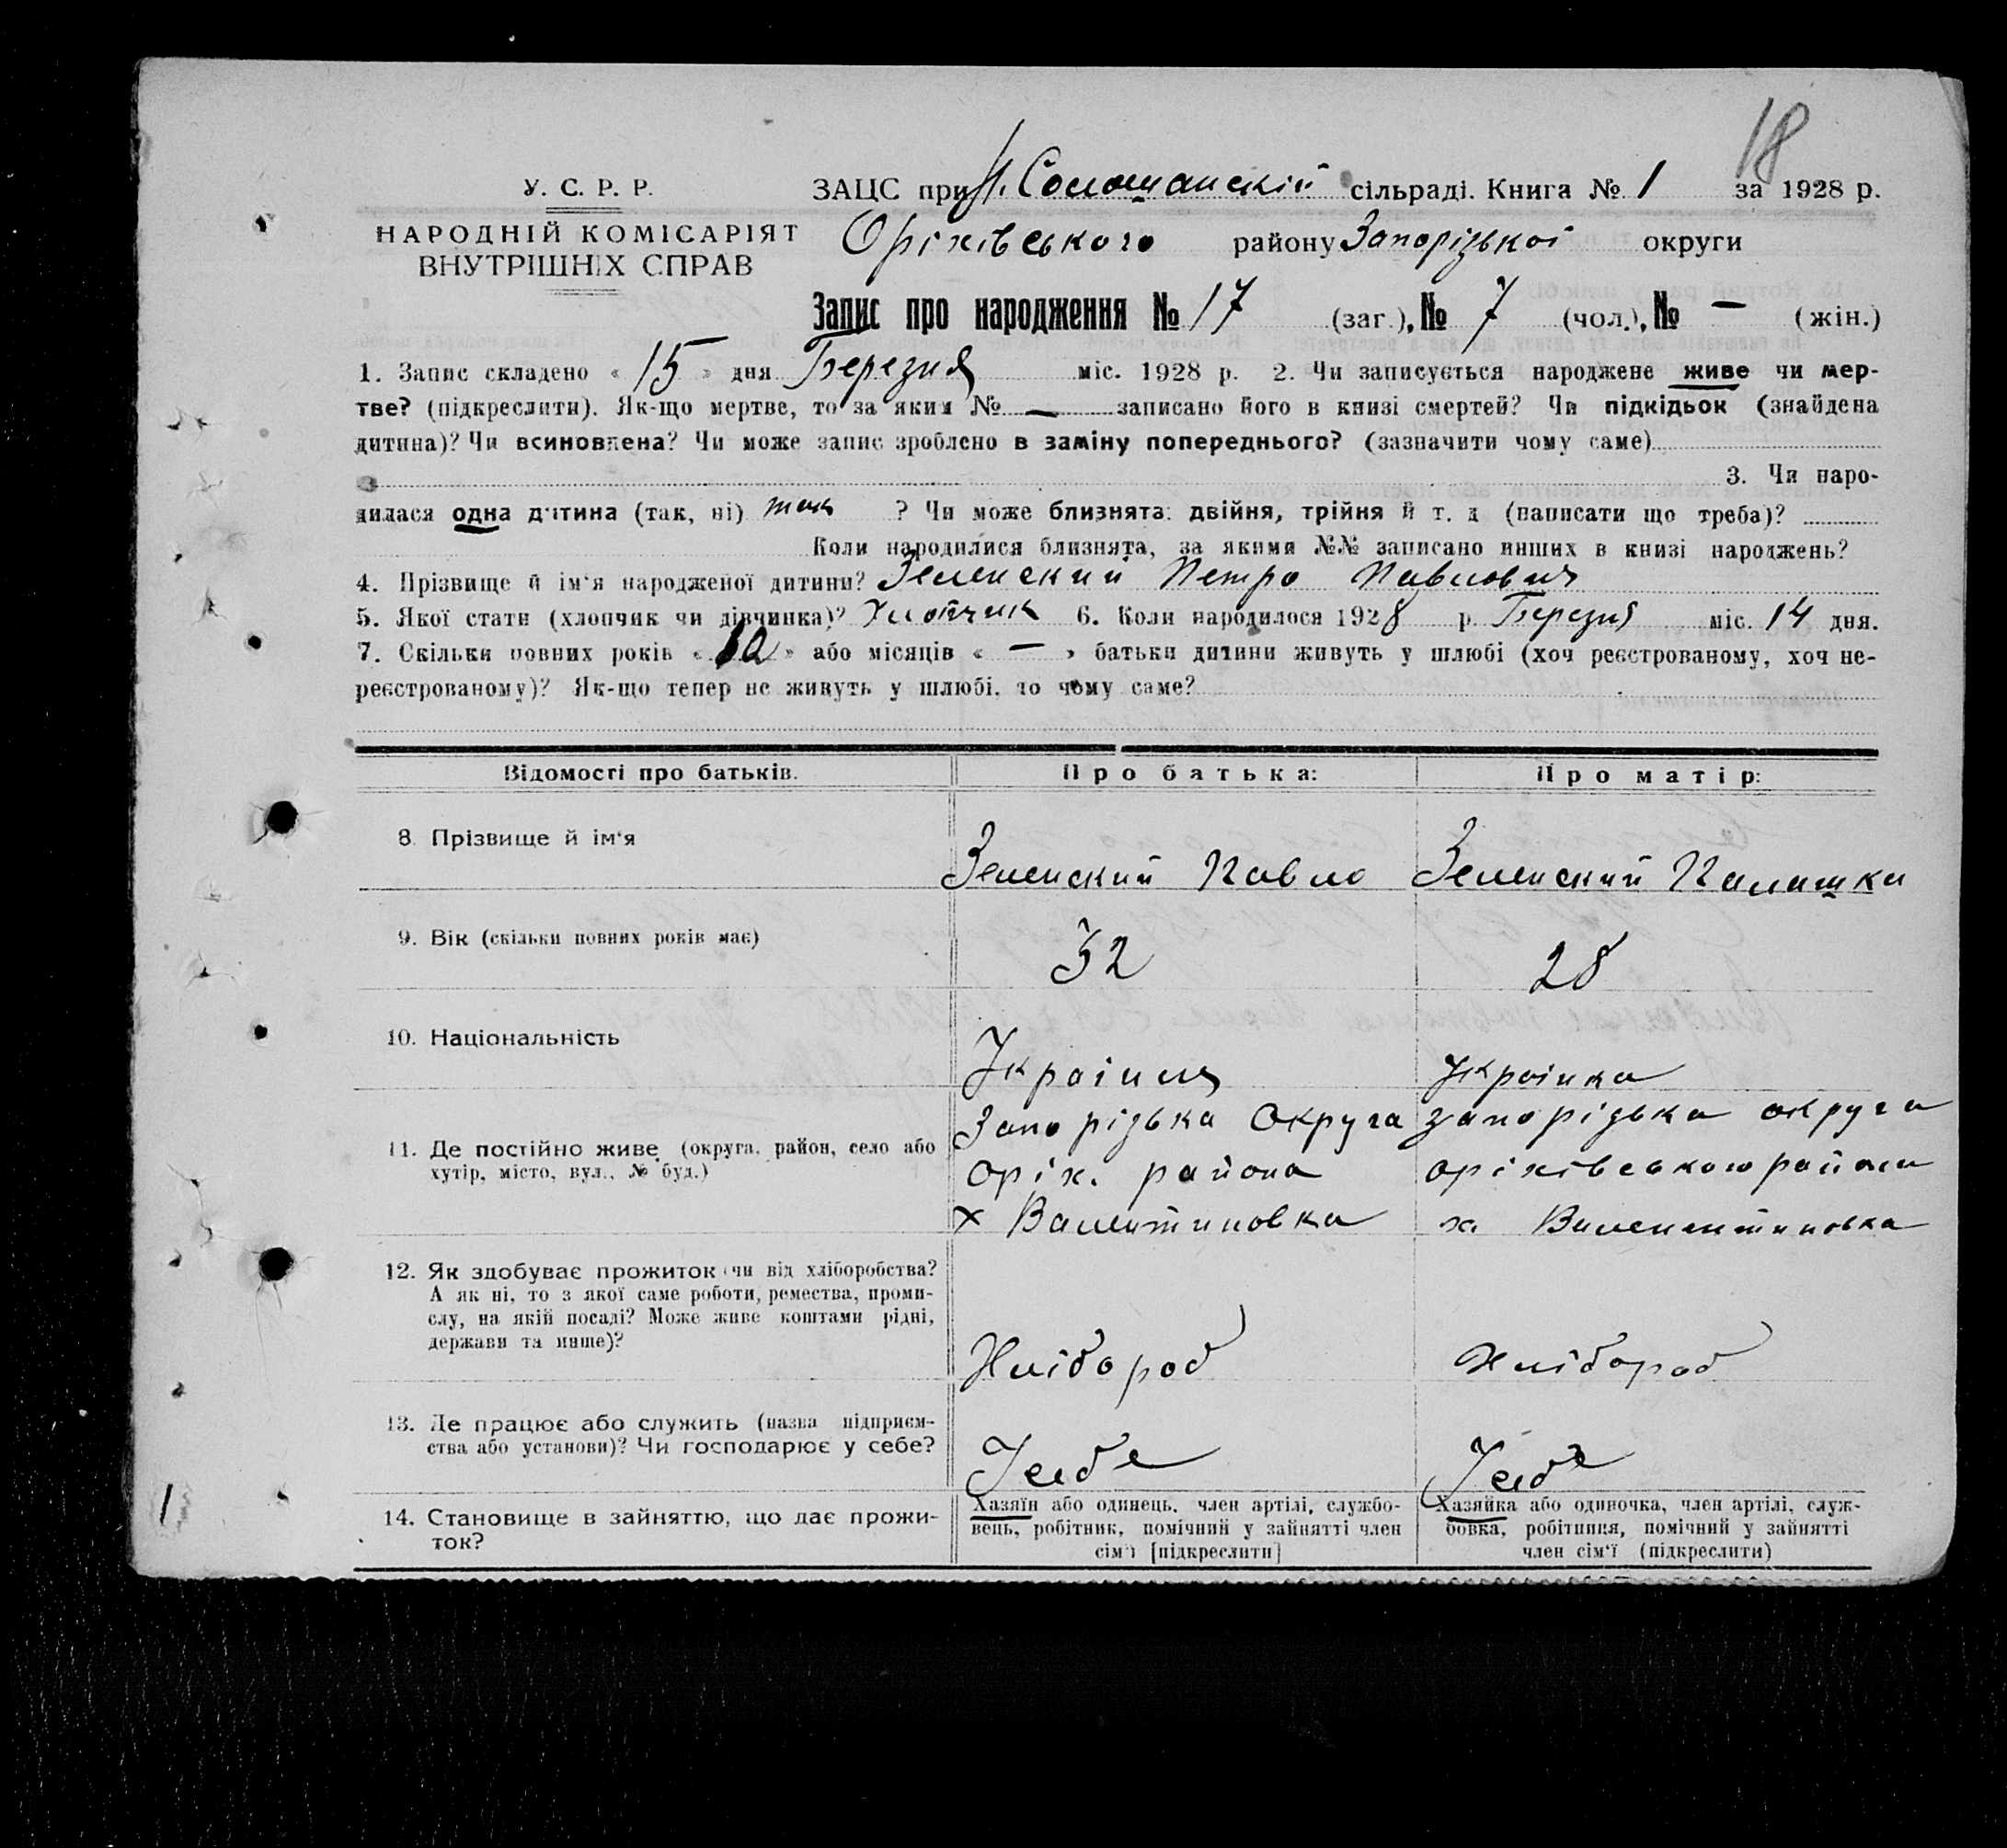 18
У. С. Р. Р.
НАРОДНІЙ КОМІСАРІЯТ
ВНУТРІШНІХ СПРАВ
ЗАЦС при сільраді. Книга № 1 за 1928 р.
Оріхівського району Запорізької округи
Запис про народження № 17 (заг.), № 7 (чол.), № — (жін.)
1. Запис складено « 15 » дня Березня міс. 1928 р. 2. Чи записується народжене живе чи мер-
тве? (підкреслити). Як-що мертве, то за яким № — записано його в книзі смертей? Чи підкідьок (знайдена
дитина)? Чи всиновлена? Чи може запис зроблено в заміну попереднього? (зазначити чому саме)
3. Чи наро-
дилася одна дитина (так, ні) так ? Чи може близнята: двійня, трійня й т. д (написати що треба)?
Коли народилися близнята, за якими №№ записано инших в книзі народжень?
4. Прізвище й ім'я народженої дитини? Зеленский Петро Павлович
5. Якої стати (хлопчик чи дівчинка)? Хлопчик 6. Коли народилося 1928 р. Березня міс. 14 дня.
7. Скільки повних років « » або місяців « — » батьки дитини живуть у шлюбі (хоч реєстрованому, хоч не-
реєстрованому)? Як-що тепер не живуть у шлюбі, то чому саме?
Відомості про батьків. Про батька: Про матір:
8. Прізвище й ім'я Зеленский Павло Зеленский
9. Вік (скільки повних років має) 32 28
10. Національність Украінця Украінка
11. Де постійно живе (округа, район, село або Запорізька Округа запорізька округа
хутір, місто, вул., № буд.) Оріх. района оріхівського района
х Валентиновка х. Валентиновка
12. Як здобуває прожиток (чи від хліборобства?
А як ні, то з якої саме роботи, ремества, проми-
слу, на якій посаді? Може живе коштами рідні,
держави та инше)? Хлібороб Хлібороб
13. Де працює або служить (назва підприєм-
ства або установи)? Чи господарює у себе? Усебе Усебе
14. Становище в зайняттю, що дає прожи-
ток?
Хазяїн або одинець, член артілі, службо-
вець, робітник, помічний у зайнятті член
сім'ї [підкреслити]
Хазяйка або одиночка, член артілі, служ-
бовка, робітниця, помічний у зайнятті
член сім'ї (підкреслити)
1